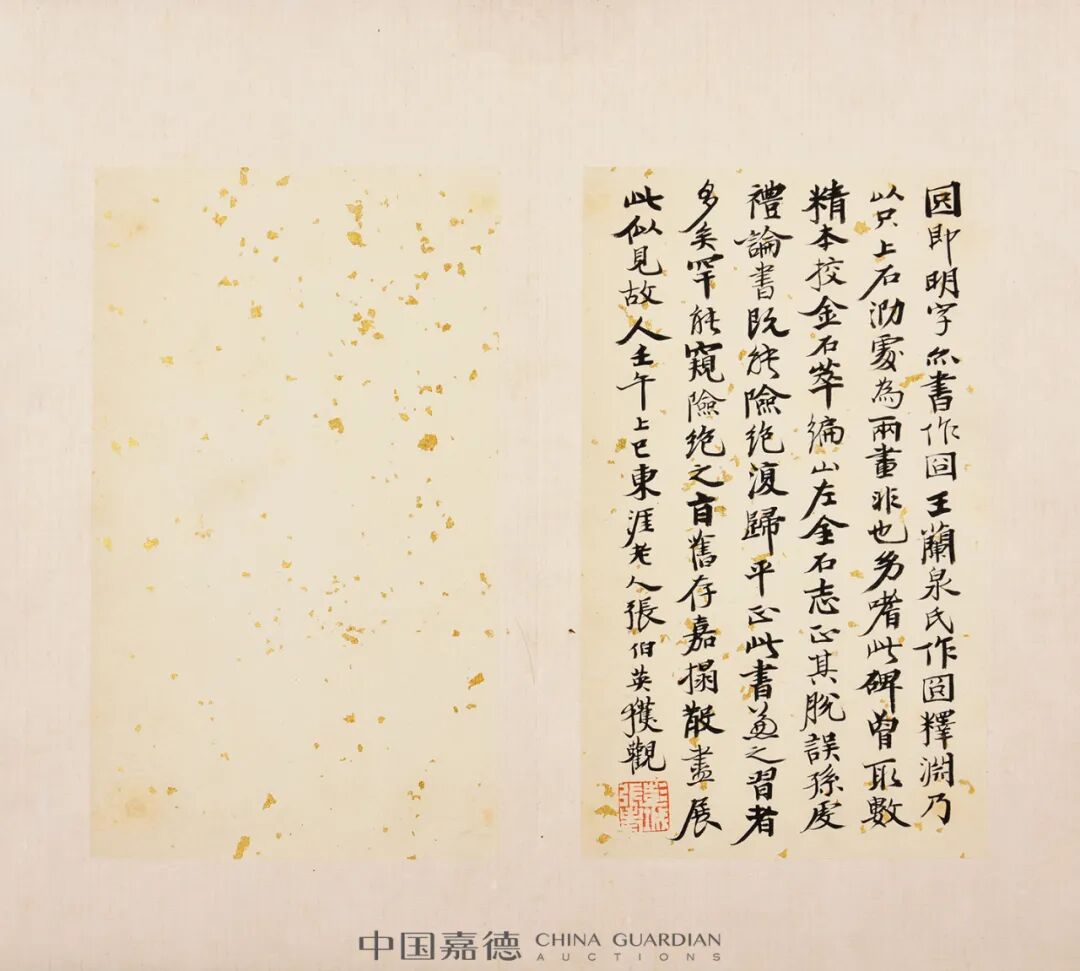 囧即明字亦書作囧王蘭泉氏作囧釋淵乃
以只上石泐處為兩畫非也勇嗜此碑曾取數
精本校金石萃編山左金石志正其脫誤孫虔
禮論書既能險絕復歸平正此書兼之習者
多矣罕能窺險絕之旨舊存嘉搨散盡展
此似見故人壬午上巳東涯老人張伯英獲觀
中国嘉德 CHINA GUARDIAN
AUCTIONS